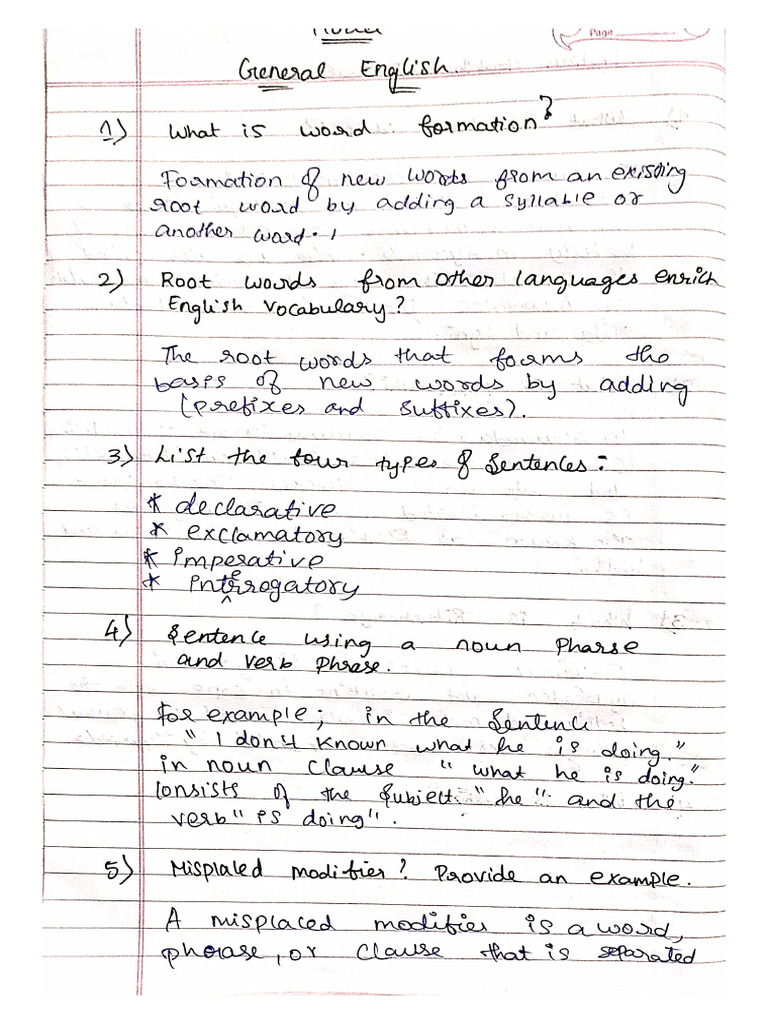 Page
General English.
1) What is word formation?
Formation of new words from an existing
root word by adding a syllable or
another word.
2) Root words from other languages enrich
English vocabulary?
The root words that forms the
bases of new words by adding
(prefixes and suffixes).
3) List the four types of Sentences:
* declarative
* exclamatory
* imperative
* interrogatory
4) Sentence using a noun Pharse
and verb phrase.
For example; in the Sentence
"I don4 known what he is doing."
in noun clause "what he is doing."
Consists of the Subject "he" and the
verb "is doing".
5) Misplaled modifier? Provide an example.
A misplaced modifier is a word,
phrase, or clause that is separated